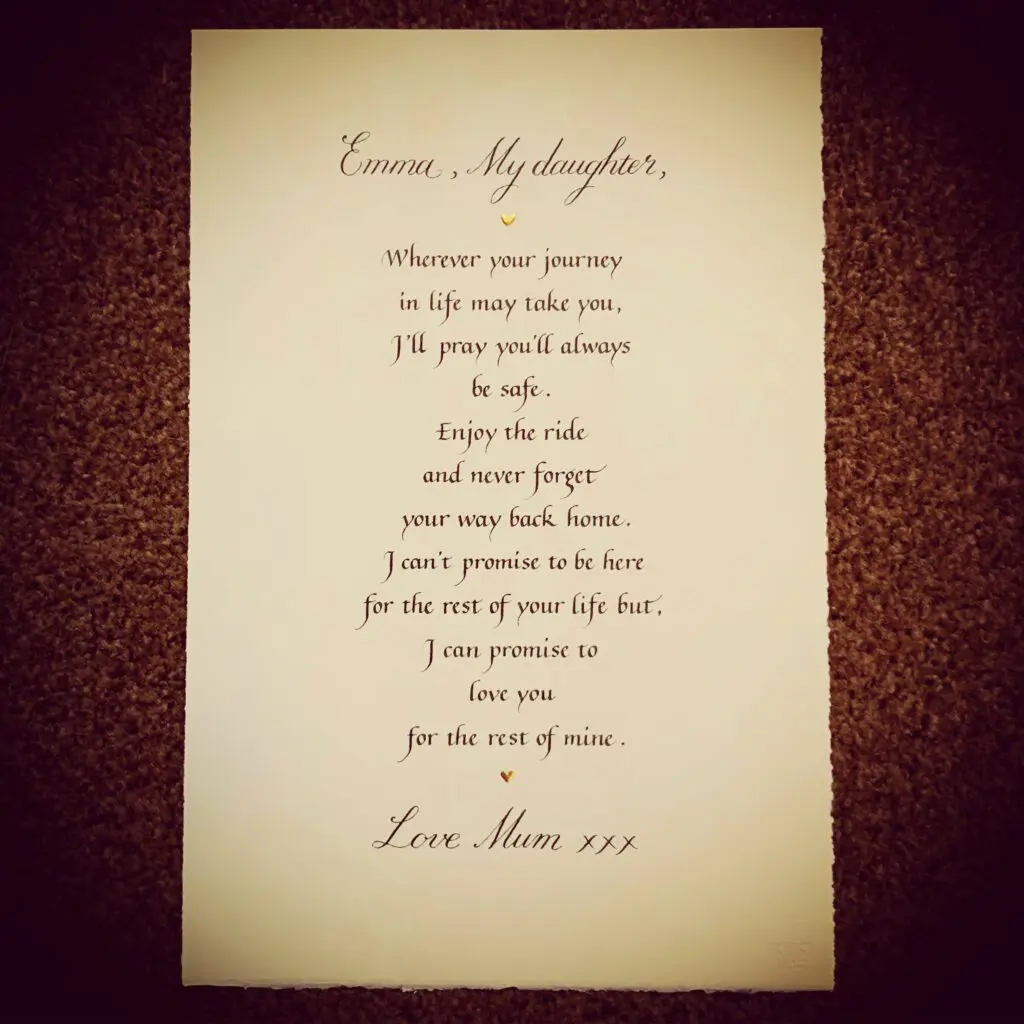 Emma, My daughter,
Wherever your journey
in life may take you,
I'll pray you'll always
be safe.
Enjoy the ride
and never forget
your way back home.
I can't promise to be here
for the rest of your life but,
I can promise to
love you
for the rest of mine.
Love Mum xxx